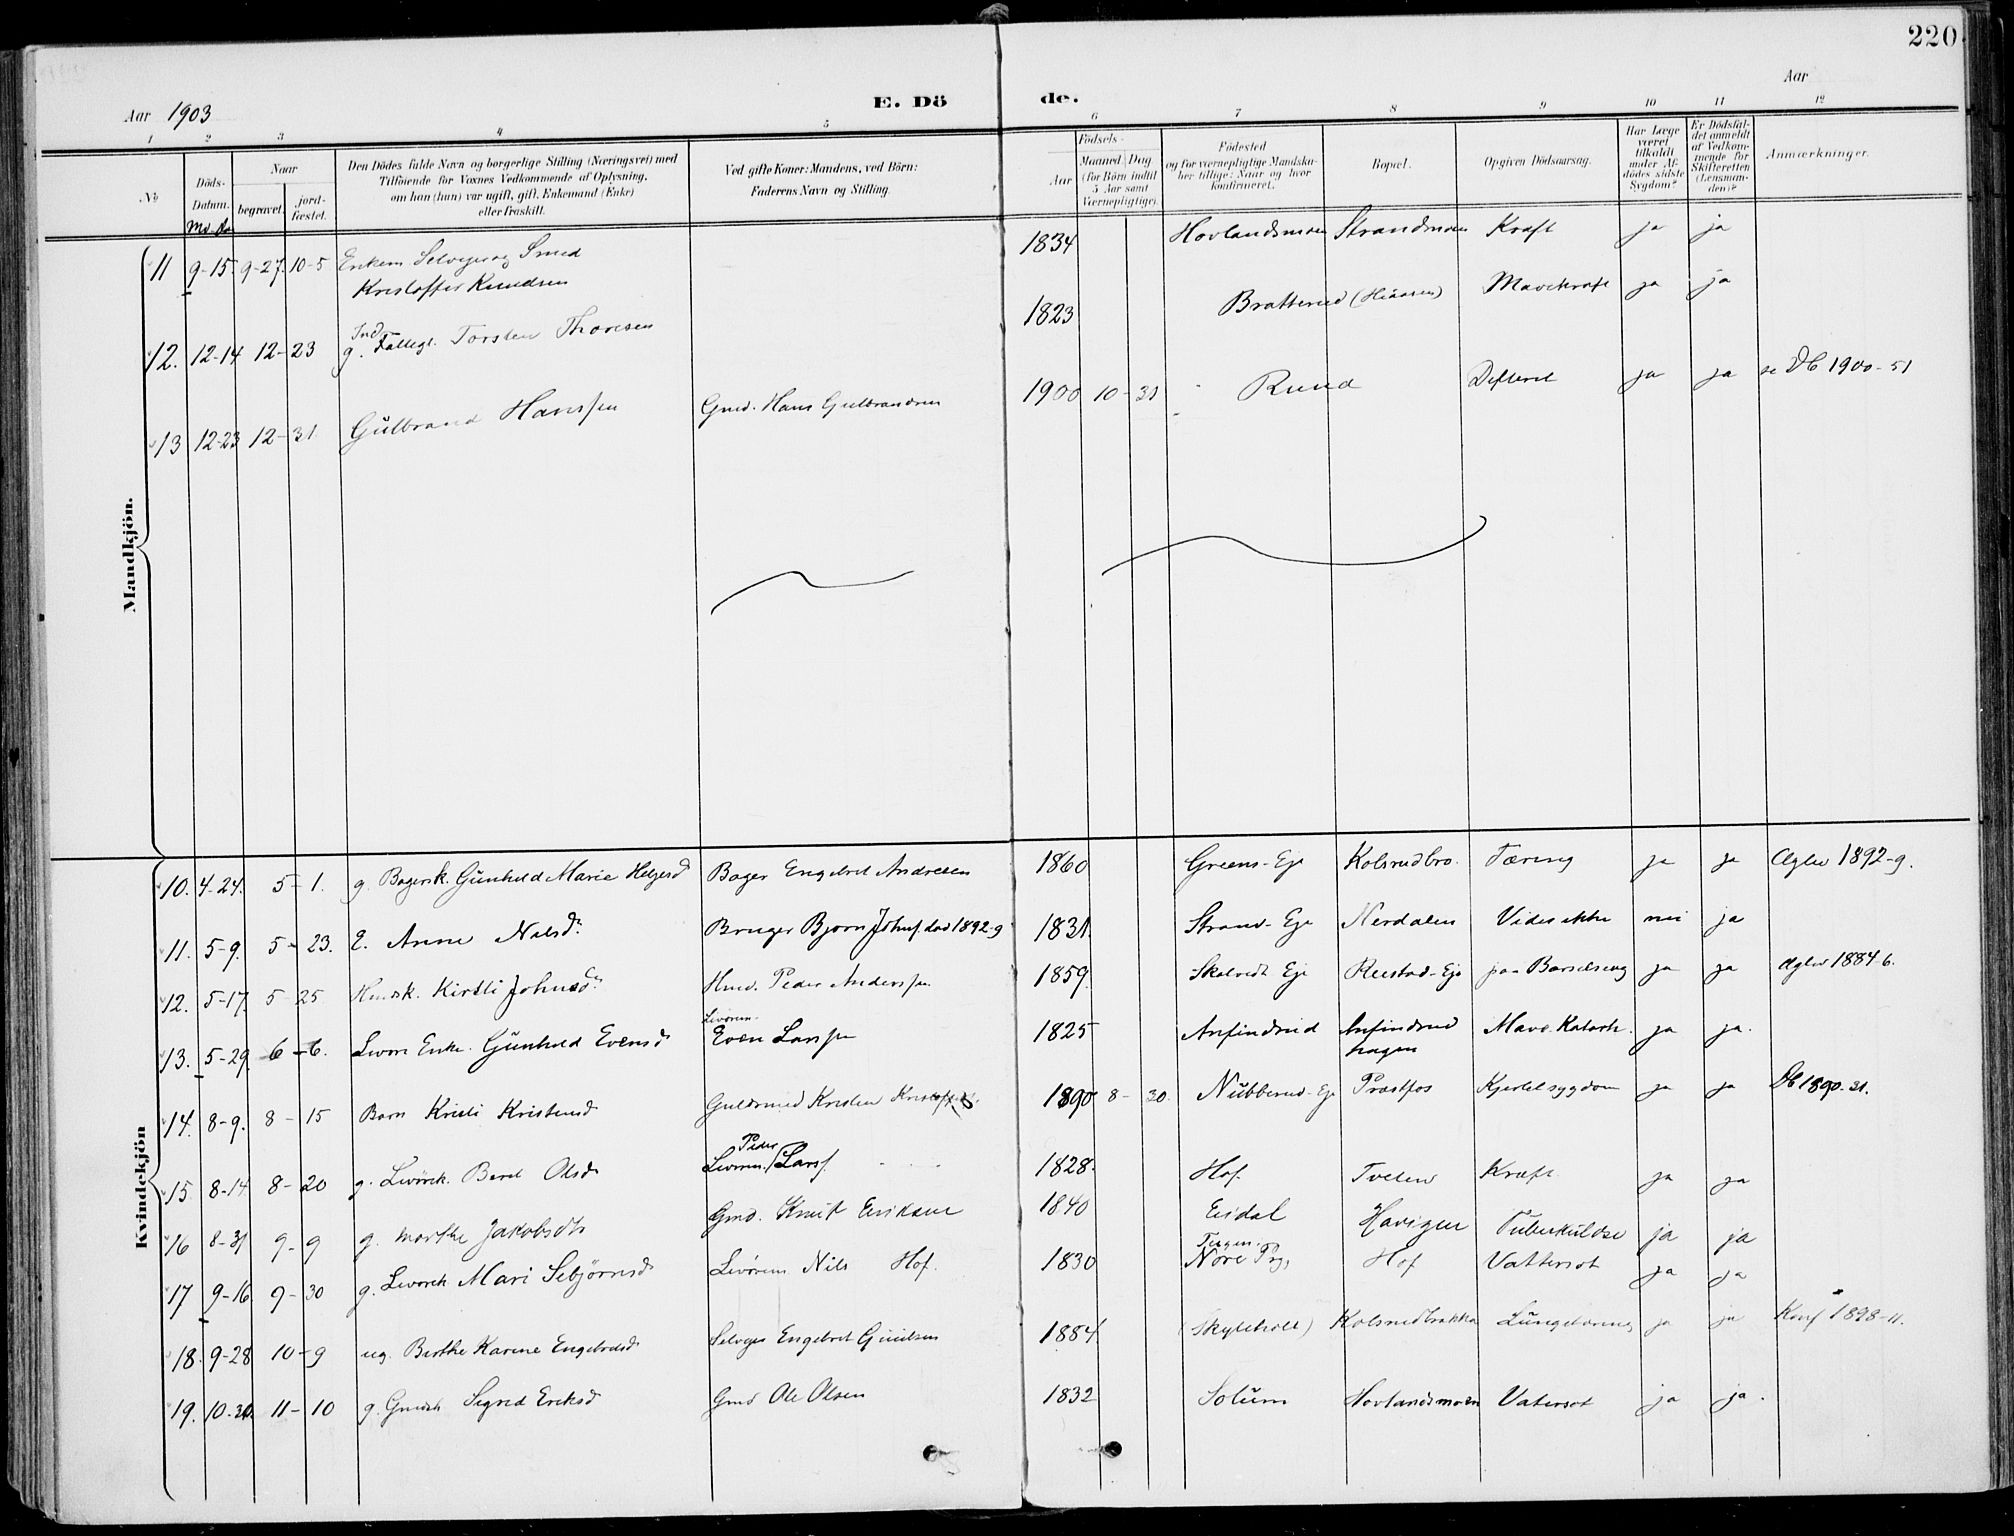 220
Aar 1903 E. Dö de. Aar
1 2 3 4 5 6 7 8 9 10 11 12
No
Döds-Datum. Md. da
Naar begravet. jord-fæstet.
Den Dödes fulde Navn og borgerlige Stilling (Næringsvei) med
Tilföiende för Voxnes Vedkommende af Oplysning,
om han (hun) var ugift, gift, Enkemand (Enke)
eller fraskilt.
Ved gifte Koner: Mandens, ved Börn:
Faderens Navn og Stilling.
Födsels-
Aar Maaned. Dag.
(for Börn indtil
5 Aar samt
Værnepligtige).
Födested
og for værnepligtige Mandska-
ber tillige: Naar og hvor
konfirmeret.
Bopæl.
Opgiven Dödsaarsag.
Har Læge
været
tilkaldt
under Af-
dödes sidste
Sygdom?
Er Dödsfal-
det anmeldt
af Vedkom-
mende for
Skifteretten
(Lensman-
den)?
Anmærkninger.
Mandkjön.
11 9-15. 9-27. 10-5 Enkem Selveier og Smed
Kristoffer Knudsen 1834 Hovlandsmoen Strandmoen Kræft ja ja
12. 12-14 12-23 g. Ind. Fattigl. Torsten Thoresen 1823 Bratterud Mavekræft ja ja
13 12-23 12-31 Gulbrand Hanssen Gmd. Hans Gulbrandsen 1900 10-31 Rud Difterit ja ja se Db 1900-51
Kvindekjön
10. 4-24. 5-1. g. Bagersk. Gunhild Marie Helgesd Bager Engebret Andresen 1860 Greens-Eje Kolsrudbro. Tæring ja ja Ægtev 1892-9.
11. 5-9. 5-23. E. Anne Nilsdr. Bruger Bjørn Johnsf. død 1892-9 1831. Strand-Eje Nerdalen Vides ikke nei ja
12. 5-17. 5-25 Hmdsk. Kirsti Johnsdr. Hmd. Peder Anderssen 1859. Eje Rustad-Eje paa Barselseng ja ja Ægtev 1884-6.
13. 5-29. 6-6. Enke. Gunhild Evensd Even Larssen 1825 Anfindrud Anfindrud
hagen Mave-Katarrh. ja ja.
14. 8-9. 8-15 Barn Kristi Kristensd Guldsmed Kristen 1890 8-30. Nubberud-Eje Præstfos Kjertelsygdom ja ja Db 1890-21.
15 8-14 8-20 g. Berit Olsd Peder
Larsf. 1828. Hof Tveten Kræft. ja ja
16 8-31 9-9 g. Marthe Jakobsdtr Gmd. Knut Eriksen 1840 Eidal Havigen Tuberkulose ja ja
17 9-16 9-30 g. Mari Sebjørnsd Nils Hof. 1830 Nore Prg. Hof Vattersot ja ja
18. 9-28 10-9 ug. Berthe Karine Engebretsd Selveier Engebret Gundsen 1884 Kolsrudbrakka ja ja Konf 1898-11.
19. 10-30. 11-10 g. Gmdsk Sigrid Eriksd Gmd Ole Olsen 1832 Solum Hovlandsmoen Vatersot ja ja.